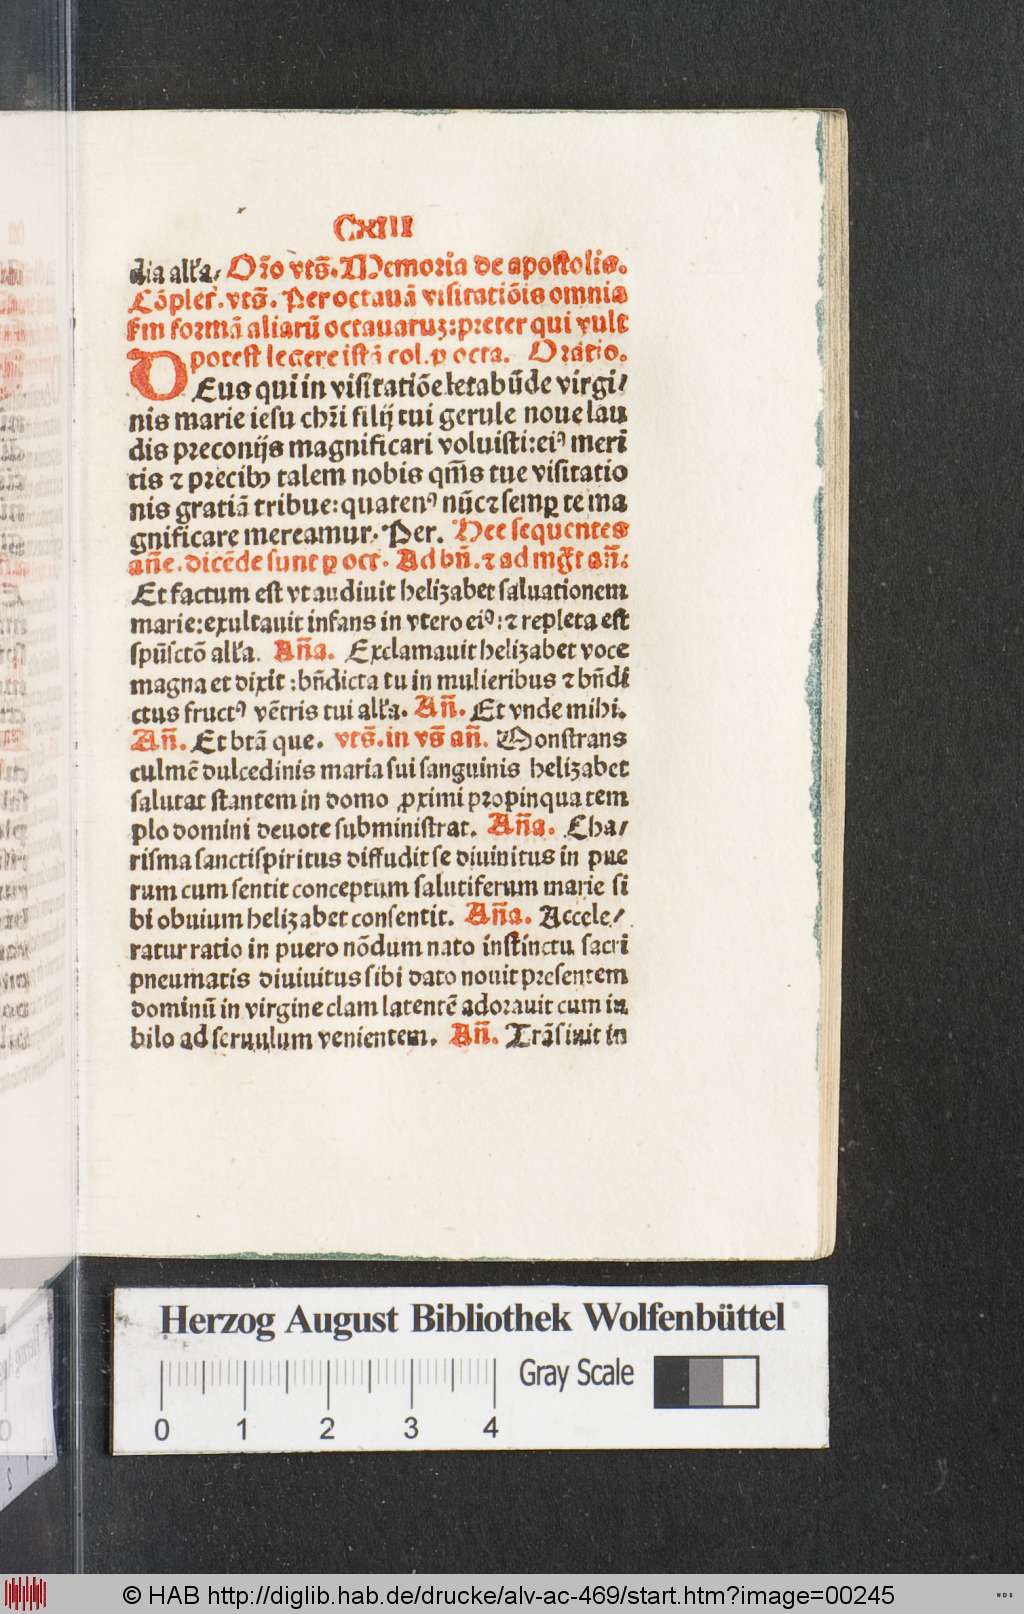 CXIII
dia alľa, Oro̅ vts̅. Memoria de apostolis.
Co̅plet̅. vts̅. Per octaua̅ visitatio̅is omnia
ſm forma̅ aliaru̅ octauaruʒ: preter qui vult
potest legere ista̅ col. ꝑ octa. Oratio.
DEus qui in visitatio̅e letabu̅de virgi/
nis marie iesu chri̅ filij tui gerule noue lau
dis preconijs magnificari voluisti: eiꝰ meri
tis ⁊ precibꝫ talem nobis qm̅s tue visitatio
nis gratia̅ tribue: quatenꝰ nu̅c ⁊ semꝑ te ma
gnificare mereamur. Per. Hee sequentes
an̅e. dice̅de sunt ꝑ oct. Ad bn̅. ⁊ ad mg̅t an̅:
Et factum est vt audiuit helizabet saluationem
marie: exultauit infans in vtero eiꝰ: ⁊ repleta est
spu̅scto̅ alľa. An̅a. Exclamauit helizabet voce
magna et dixit: bn̅dicta tu in mulieribus ⁊ bn̅di
ctus fructꝰ ve̅tris tui alľa. An̅. Et vnde mihi.
An̅. Et bta̅ que. vts̅. in vs̅ an̅. Monstrans
culme̅ dulcedinis maria sui sanguinis helizabet
salutat stantem in domo ꝓximi propinqua tem
plo domini deuote subministrat. An̅a. Cha/
risma sanctispiritus diffudit se diuinitus in pue
rum cum sentit conceptum salutiferum marie si
bi obuium helizabet consentit. An̅a. Accele/
ratur ratio in puero no̅dum nato instinctu sacri
pneumatis diuiuitus sibi dato nouit presentem
dominu̅ in virgine clam latente̅ adorauit cum iu
bilo ad seruulum venientem. An̅. Tra̅siuit in
Herzog August Bibliothek Wolfenbüttel
Gray Scale
0 1 2 3 4
© HAB http://diglib.hab.de/drucke/alv-ac-469/start.htm?image=00245